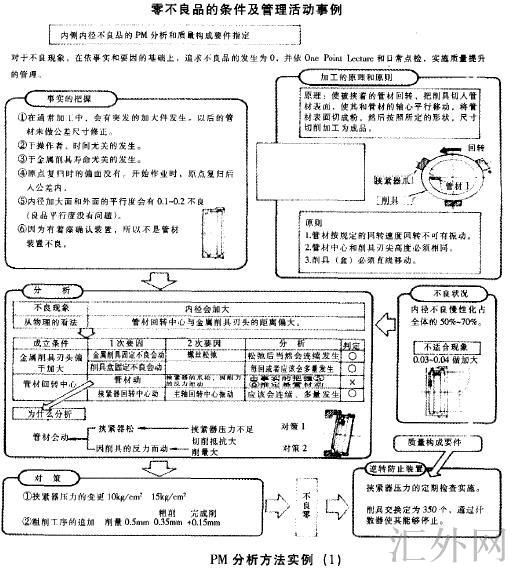 零不良品的条件及管理活动事例
内侧内径不良品的 PM 分析和质量构成要件指定
对于不良现象，在依事实和要因的基础上，追求不良品的发生为 0，并依 One Point Lecture 和日常点检，实施质量提升
的管理。
事实的把握
①在通常加工中，会有突发的加大件发生，以后的管
材未做公差尺寸修正。
②于操作者、时间无关的发生。
③于金属削具寿命无关的发生。
④原点复归时的偏面没有，开始作业时，原点复归后
人公差内。
⑤内径加大面和外面的平行度会有 0.1~0.2 不良
(良品平行度没有问题)。
⑥因为有着座确认装置，所以不是管材
装置不良。
加工的原理和原则
原理：使被挟着的管材回转，把削具切入管
材表面，使其和管材的轴心平行移动，将管
材表面切成粉，然后按照所定的形状、尺寸
切削加工为成品。
回转
挟紧器爪
管材 1
削具
原则
1.管材按规定的回转速度回转不可有振动。
2.管材中心和削具刃尖高度必须相同。
3.削具（盒）必须直线移动。
分 析
不良现象 内径会加大
从物理的看法 管材回转中心与金属削具刃头的距离偏大。
成立条件 1 次要因 2 次要因 分 析 判定
金属削具刃头偏 金属削具固定不良会动 螺丝松弛 松弛后当然会连续发生 ○
于加大 削具盒固定不良会动 每回或者应该会多量发生 ○
管材回转中心 管材动 ×
挟紧器回转中心动 主轴回转中心振动 应该会连续、多量发生 ○
为什么分析
管材会动 挟紧器松 挟紧器压力不足 对策 1
因削具的反力而动 切削抵抗大
削量大 对策 2
不良状况
内径不良慢性化占
全体的 50%~70%。
不适合现象
0.03~0.04 做加大
质量构成要件
对 策
①挟紧器压力的变更 10kg/cm² 15kg/cm²
粗削 完成削
②粗削工序的追加 削量 0.5mm 0.35mm +0.15mm
不
良
零
逆转防止装置
挟紧器压力的定期检查实施。
削具交换定为 350 个，通过计
数器使其能够停止。
汇外网
PM 分析方法实例（1）